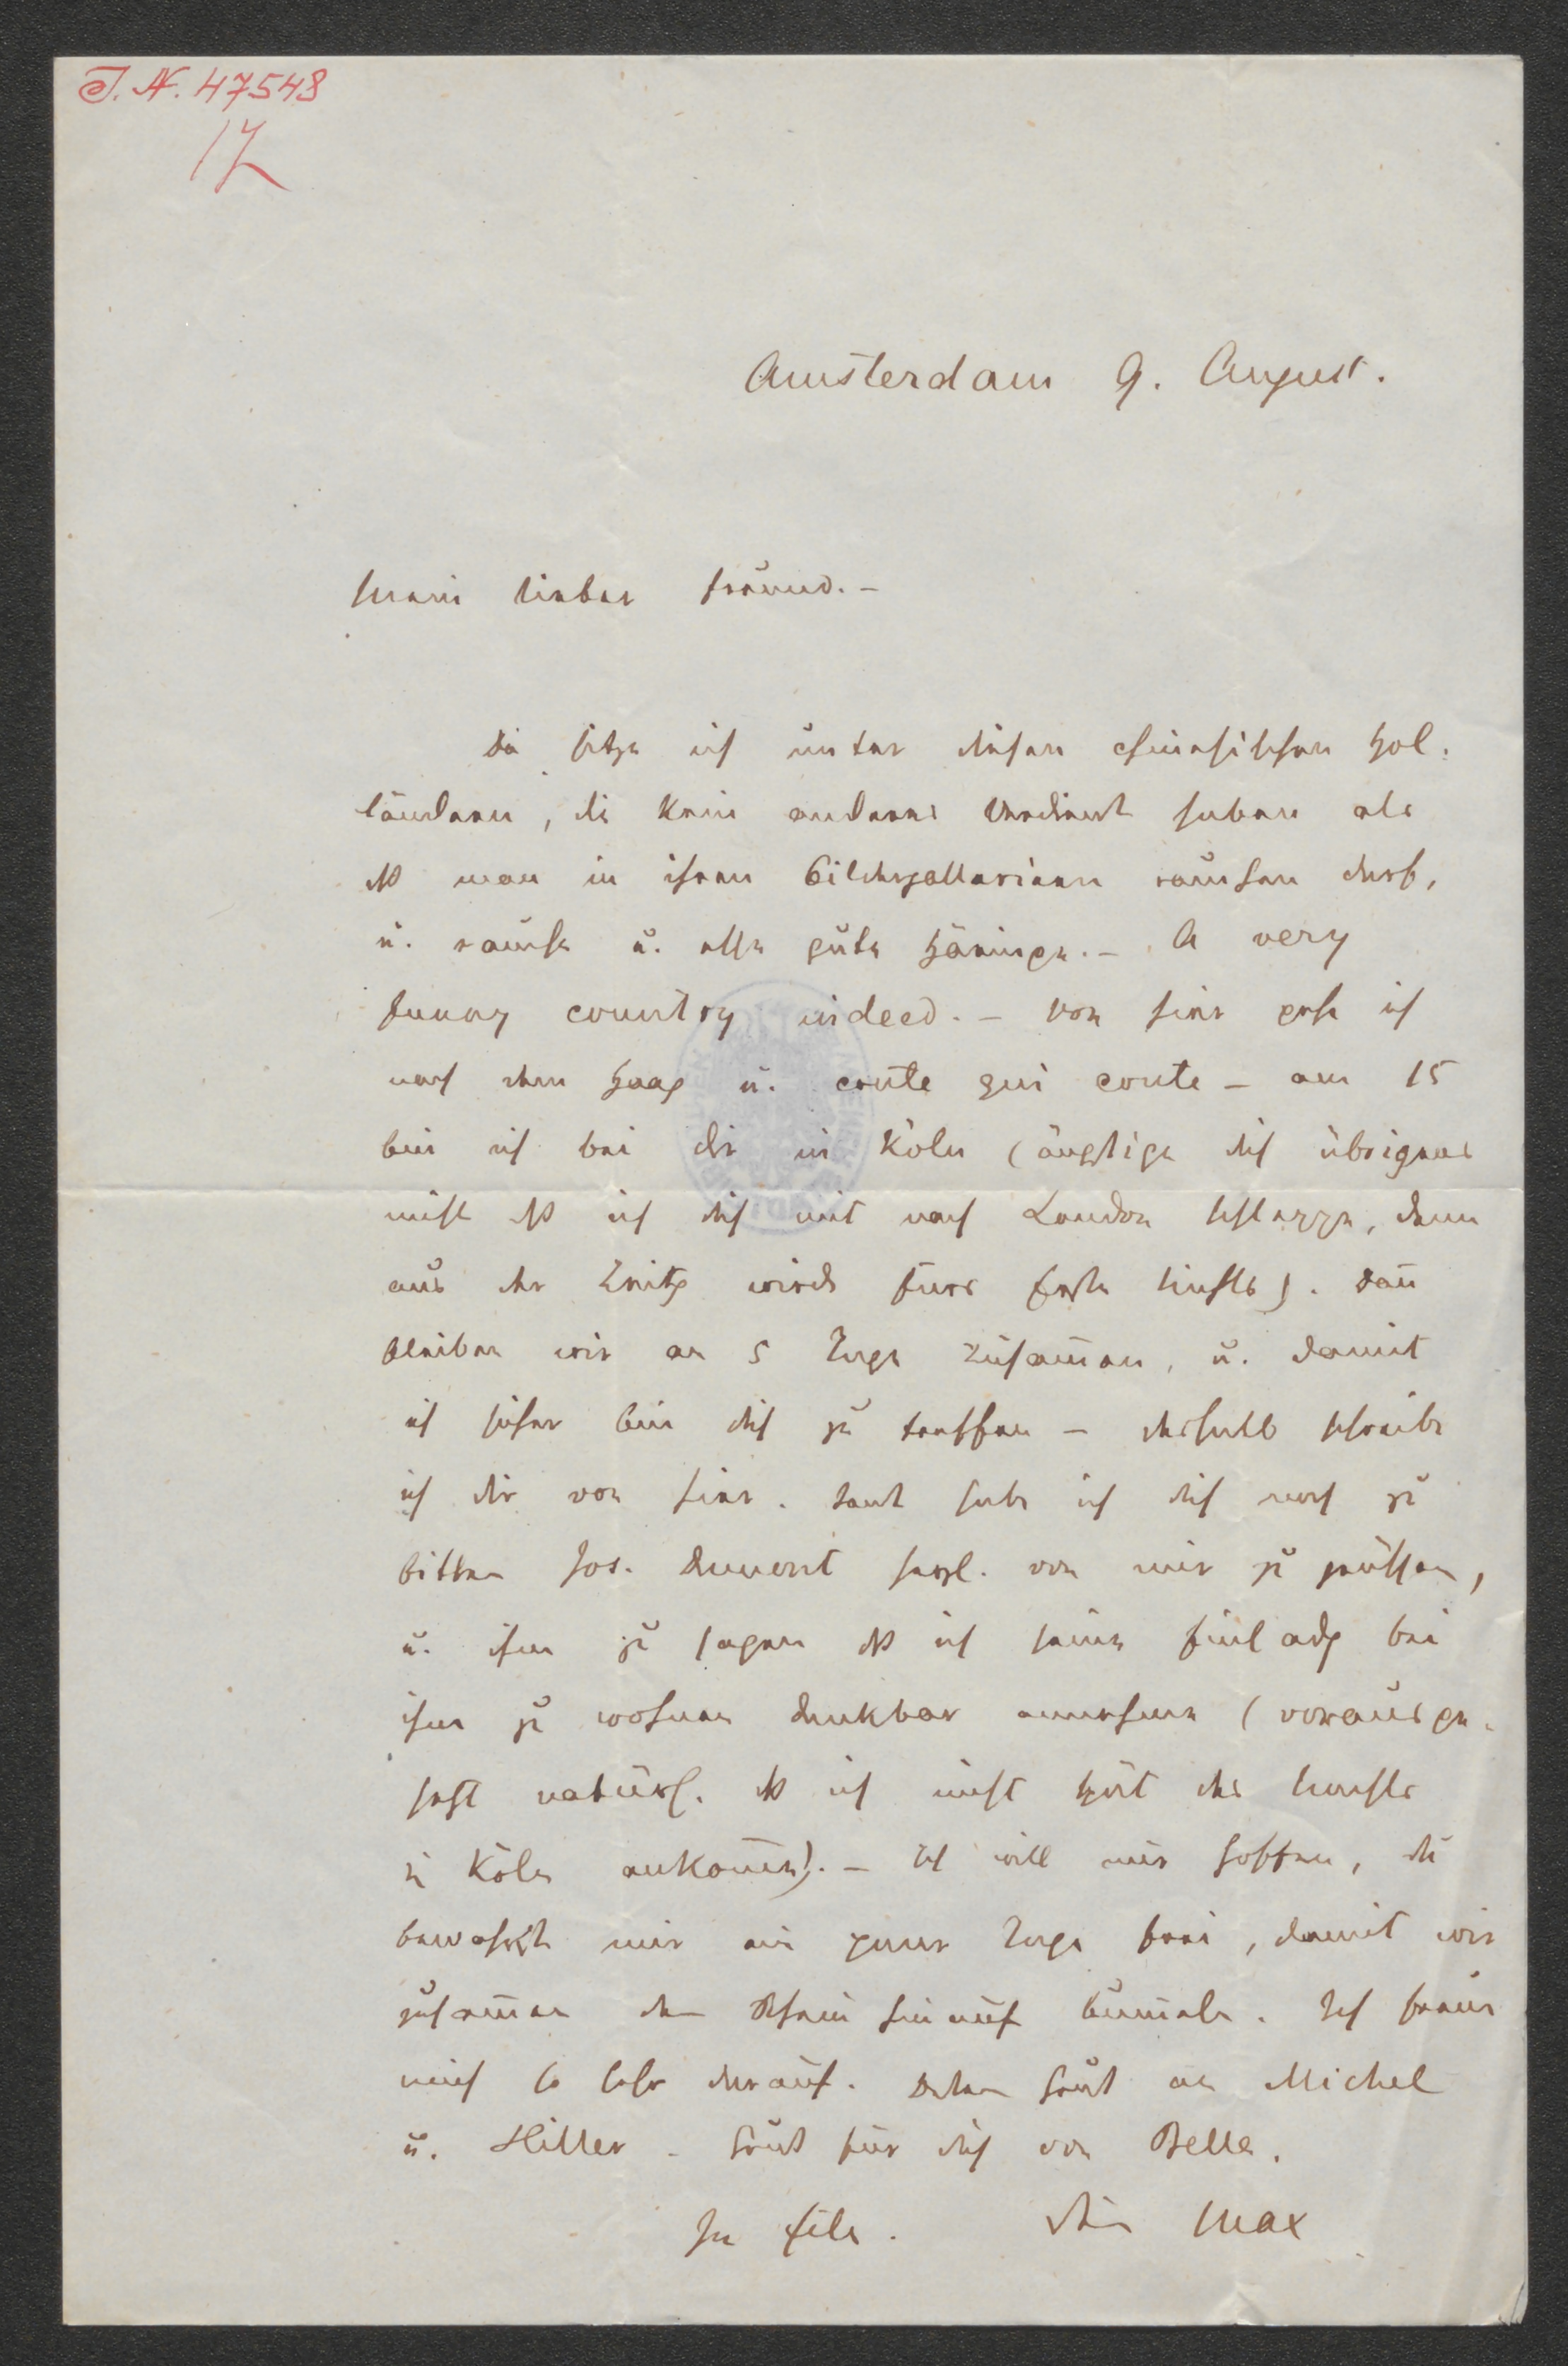 J. N. 47548
17
Amsterdam 9. August.
Mein lieber Freund. –
Da sitze ich unter diesen chinesischen Hol-
ländern, die kein anderes Verdienst haben als
dß man in ihren Bildergallerien rauchen darf,
u. rauche u. esse gute Häringe. – A very
funny country indeed. – Von hier gehe ich
nach dem Haag u. coute qui coute – am 15
bin ich bei dir in Köln (ängstige dich übrigens
nicht dß ich dich mit nach London schleppe, denn
aus der Reise wirds fürs Erste nichts). Dañ
bleiben wir an 5 Tage zusam̄en, u. damit
ich sicher bin dich zu treffen – deshalb schreibe
ich dir von hier. Sonst habe ich dich noch zu
bitten Jos. Dumont herzl. von mir zu grüßen,
u. ihm zu sagen dß ich seine Einladg bei
ihm zu wohnen dankbar annehme (vorausge-
setzt natürl. dß ich nicht spät des Nachts
in Köln ankom̄e). – Ich will nur hoffen, du
bewahrst mir ein paar Tage frei, damit wir
zusam̄en den Rhein hinauf bum̄eln. Ich freue
mich so sehr darauf. Schön Gruß an Michel
u. Hiller – Gruß für dich von Belle.
In Eile. Dein Max